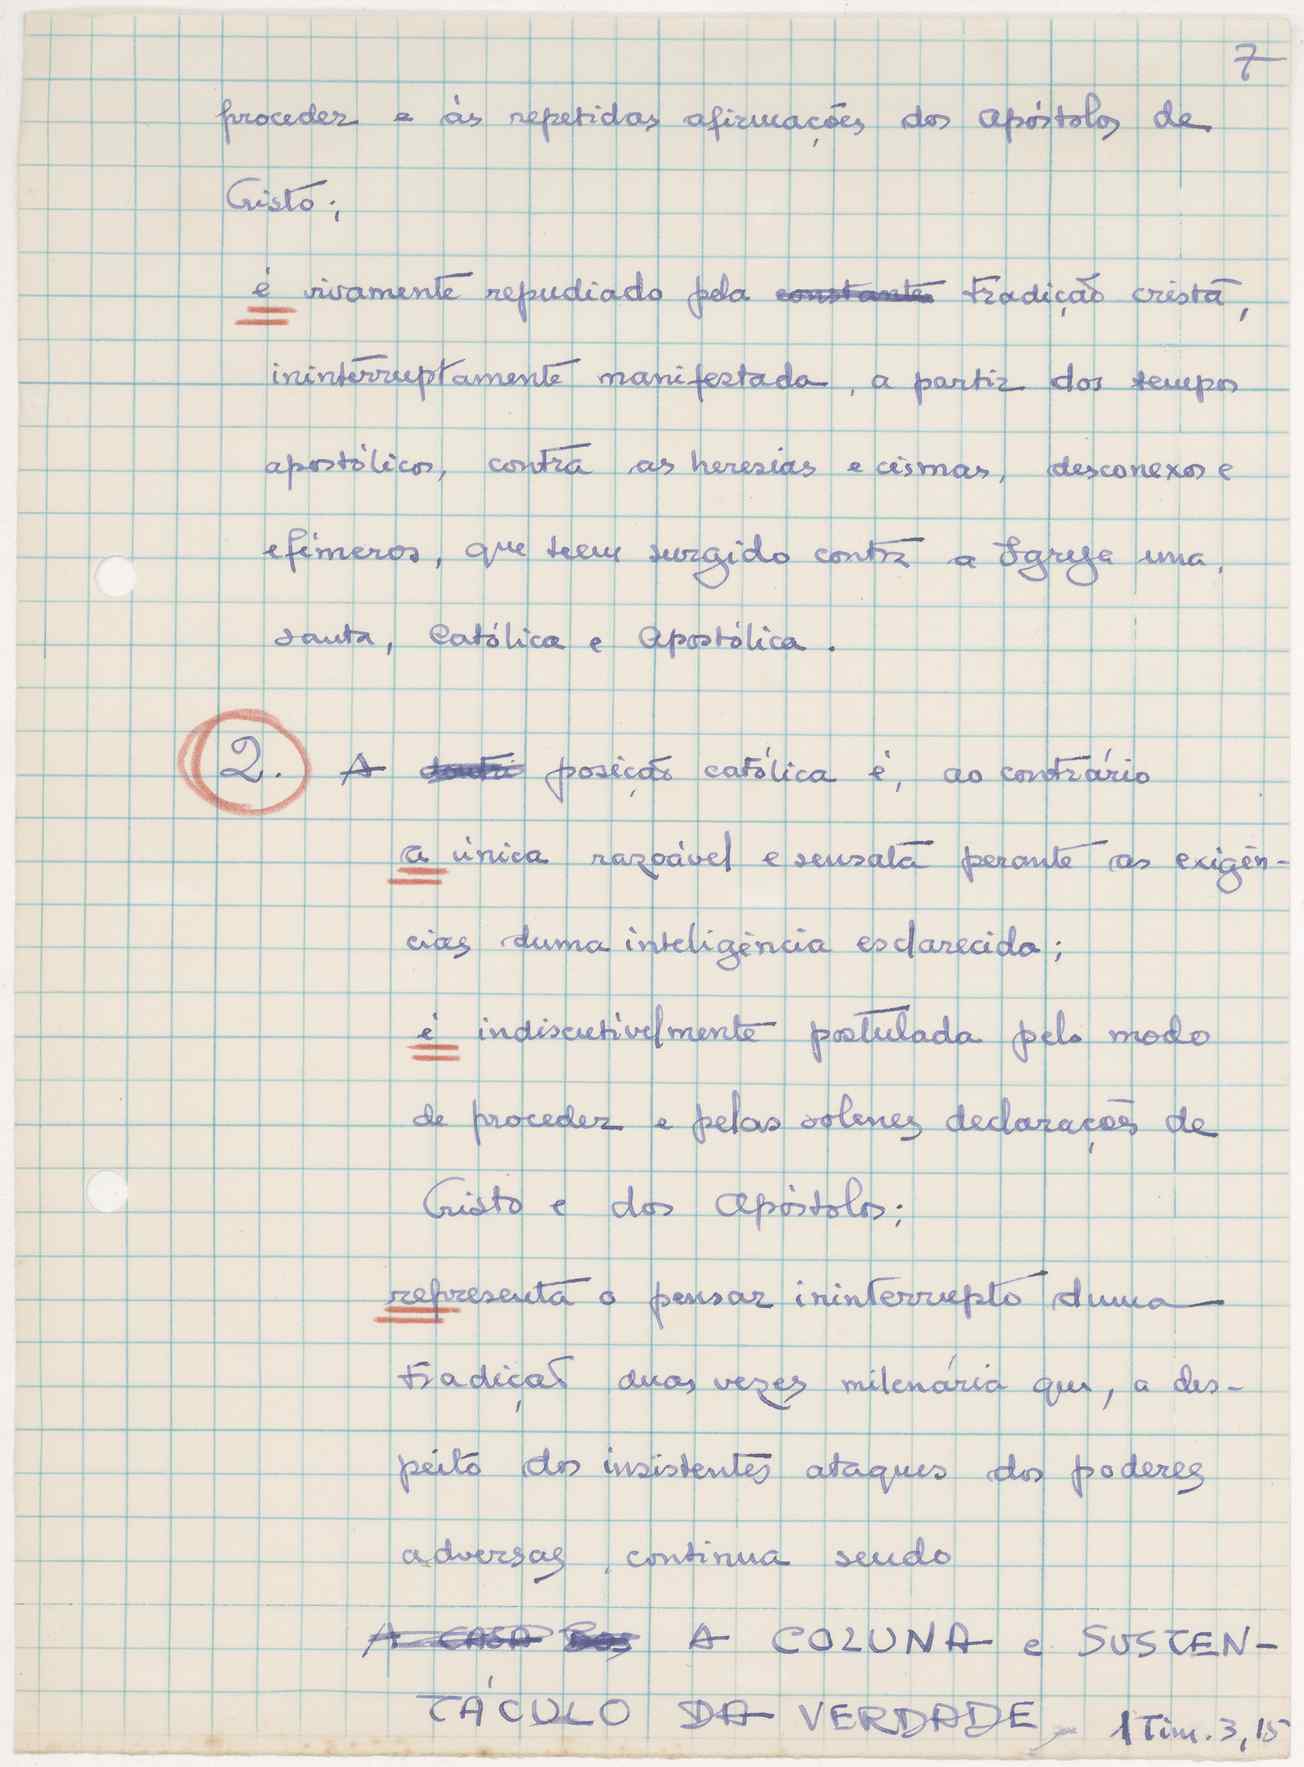 7
proceder e às repetidas afirmações dos apóstolos de
Cristo;
é vivamente repudiado pela constante tradição cristã,
ininterruptamente manifestada, a partir dos tempos
apostólicos, contra as heresias e cismas, desconexos e
efémeros, que teem surgido contra a Igreja una,
santa, Católica e Apostólica.
2. A posição católica é, ao contrário
a única razoável e sensata perante as exigên-
cias duma inteligência esclarecida;
é indiscutivelmente postulada pelo modo
de proceder e pelas solenes declarações de
Cristo e dos Apóstolos;
representa o pensar ininterrupto duma
tradição duas vezes milenária que, a des-
peito dos insistentes ataques dos poderes
adversos, continua sendo
A CASA A COLUNA e SUSTEN-
TÁCULO DA VERDADE 1 Tim. 3,15